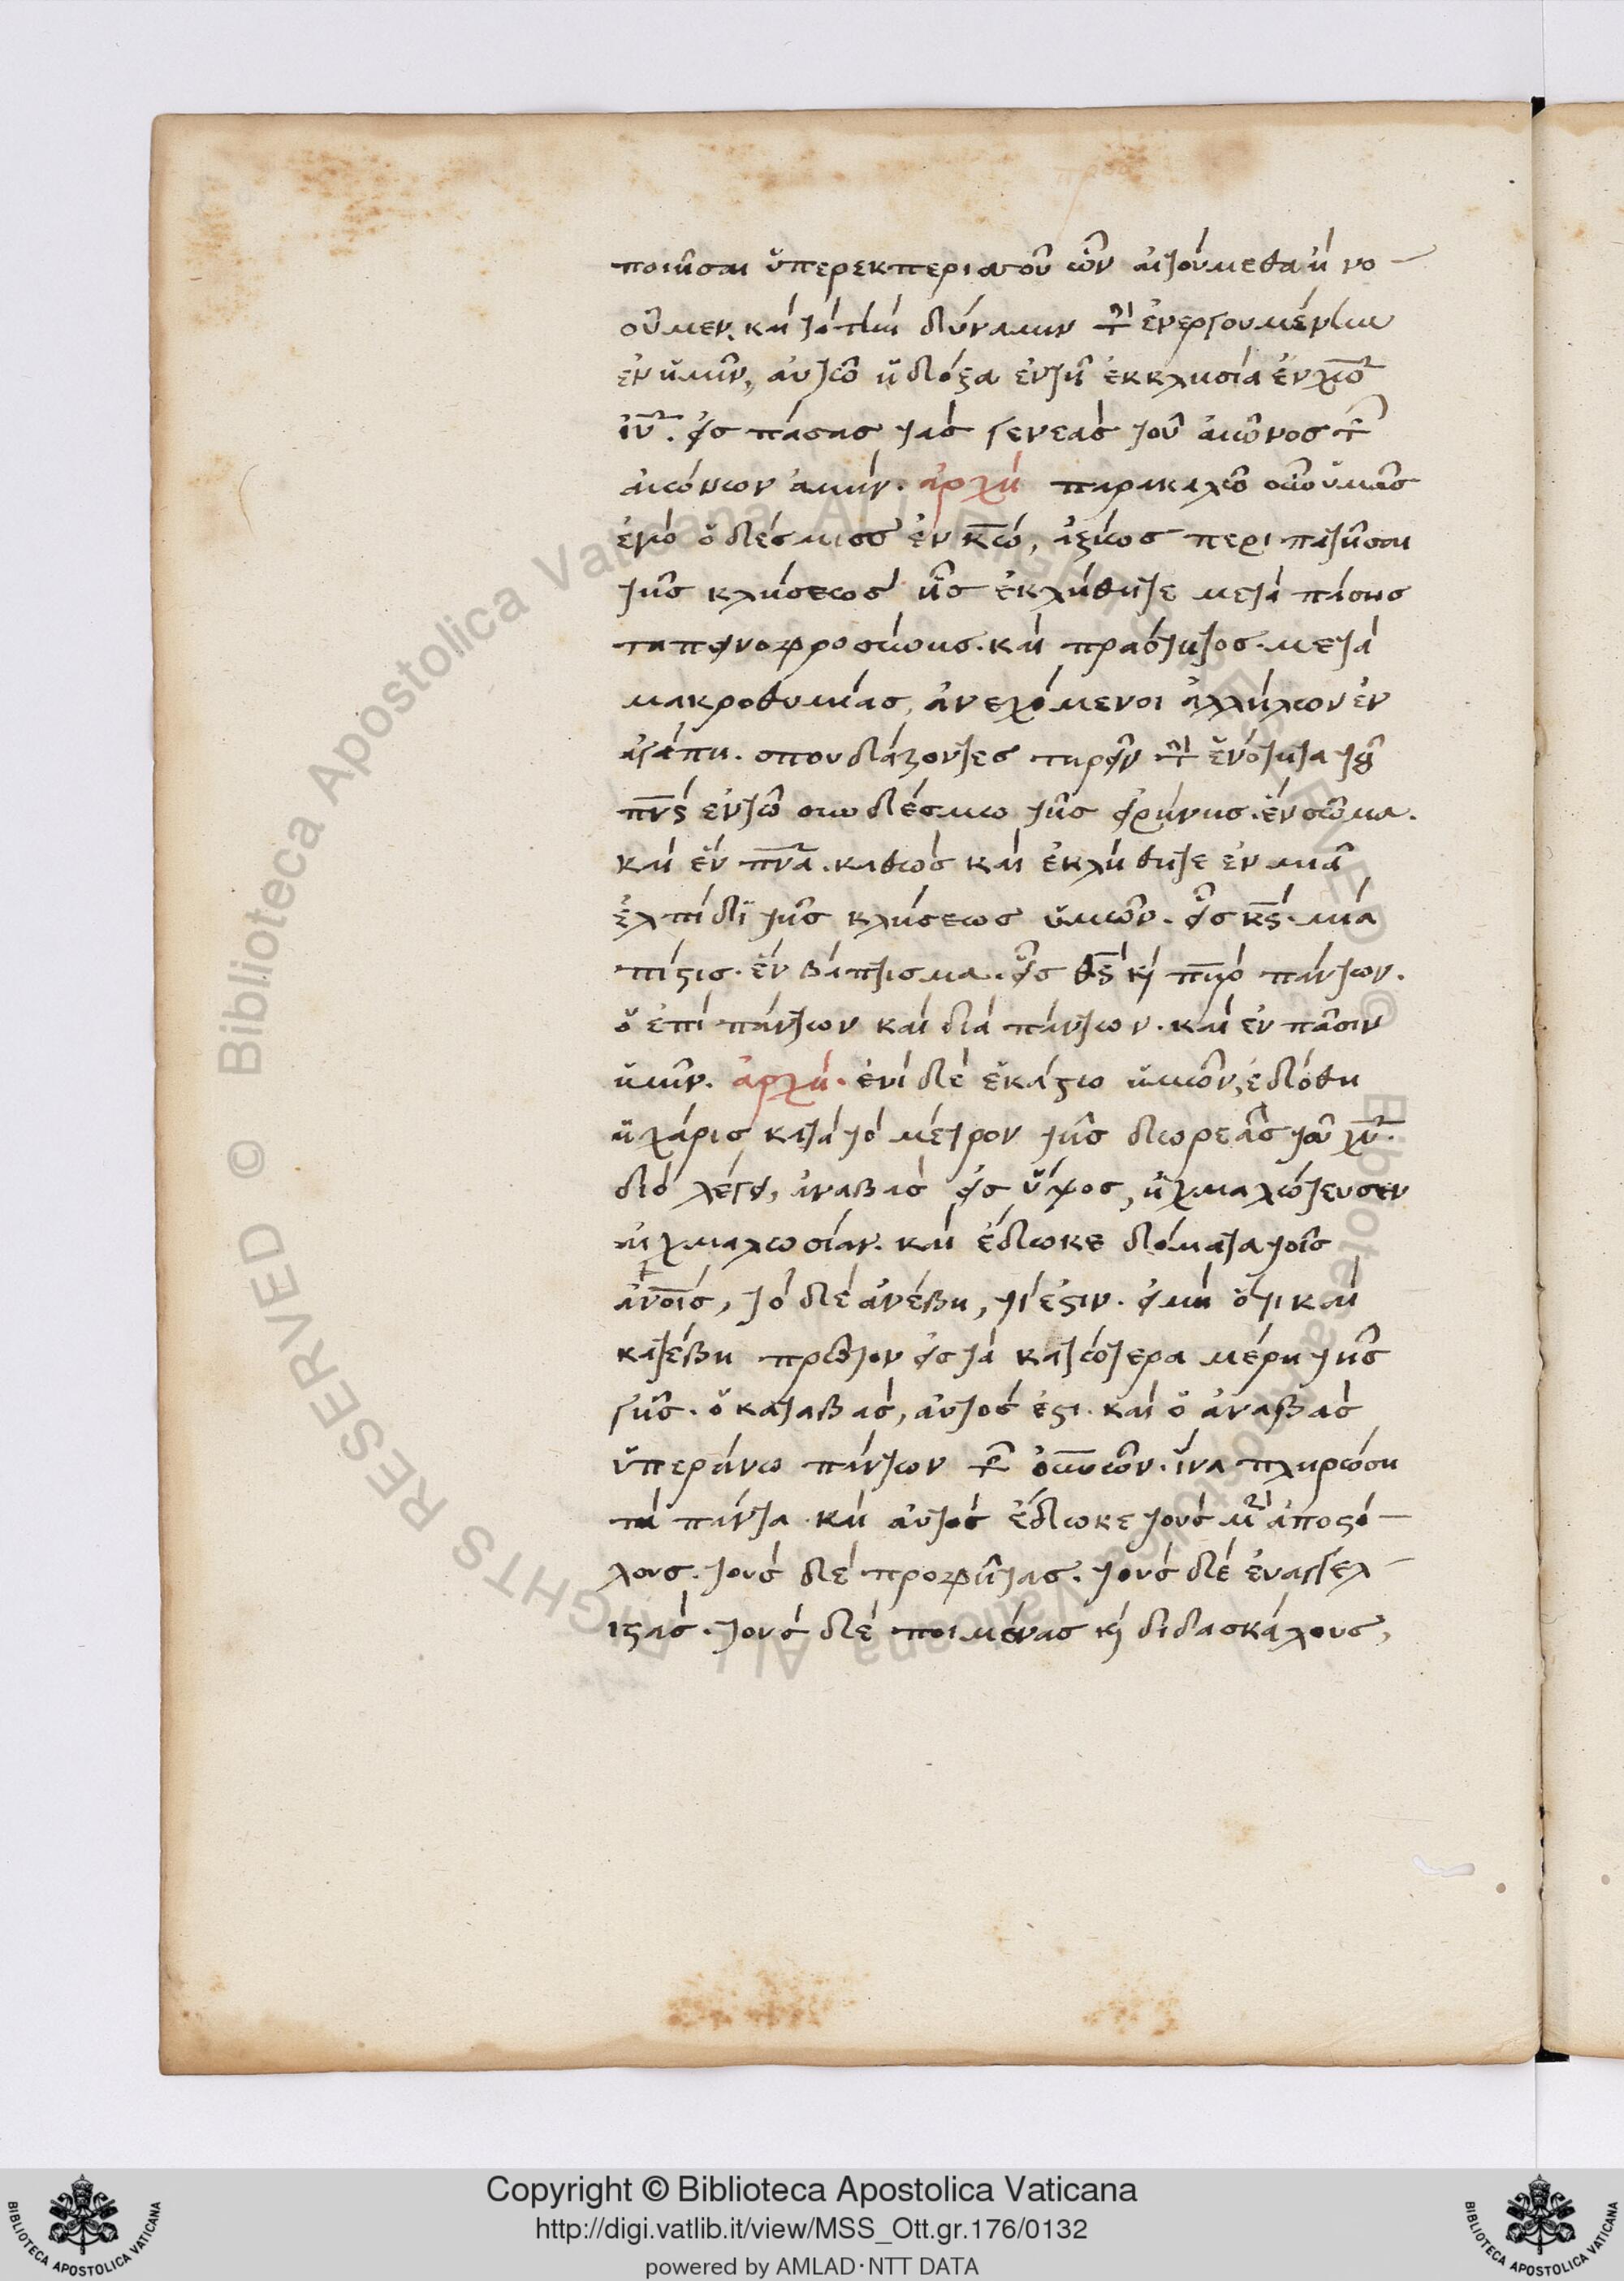 ποιῆσαι ὑπερεκπερισσοῦ ὧν αἰτούμεθα ἢ νο-
οῦμεν, καὶ τὸ πὰν δύναμιν τ̅ ἐνεργουμένην
ἐν ὑμῖν, αὐτῶ ἡ δόξα ἐν τῆ ἐκκλησία ἐν χ̅ω̅
ι̅υ̅. εἰς πάσας τὰς γενεὰς τοῦ αἰῶνος τ̅
αἰώνων ἀμήν. ἀρχὴ παρακαλῶ οὖν ὑμᾶς
ἐγὼ ὁ δέσμιος ἐν κ̅ω̅, ἀξίως περιπατῆσαι
τῆς κλήσεως ἧς ἐκλήθητε μετὰ πάσης
ταπεινοφροσύνης. καὶ πραότητος. μετὰ
μακροθυμίας, ἀνεχόμενοι ἀλλήλων ἐν
ἀγάπη. σπουδάζοντες τηρεῖν τ̅ ἑνότητα τοῦ
π̅ν̅ς ἐν τῶ συνδέσμω τῆς εἰρήνης. ἓν σῶμα.
καὶ ἓν π̅ν̅α. καθὼς καὶ ἐκλήθητε ἐν μιᾶ
ἐλπίδι τῆς κλήσεως ὑμῶν. εἷς κ̅ς. μία
πίστις. ἓν βάπτισμα. εἷς θ̅ς κ π̅η̅ρ πάντων.
ὁ ἐπὶ πάντων καὶ διὰ πάντων. καὶ ἐν πᾶσιν
ἡμῖν. ἀρχή. ἑνὶ δὲ ἑκάστω ἡμῶν, ἐδόθη
ἡ χάρις κατὰ τὸ μέτρον τῆς δωρεᾶς τοῦ χ̅υ̅.
διὸ λέγει, ἀναβὰς εἰς ὕψος, ἠχμαλώτευσεν
αἰχμαλωσίαν. καὶ ἔδωκε δόματα τοῖς
ἀν̅οι̅ς, τὸ δὲ ἀνέβη, τί ἐστιν. εἰ μὴ ὅτι καὶ
κατέβη πρῶτον εἰς τὰ κατώτερα μέρη τῆς
γῆς. ὁ καταβὰς, αὐτός ἐστι. καὶ ὁ ἀναβὰς
ὑπεράνω πάντων τ̅ ο̅υ̅νῶν. ἵνα πληρώση
τὰ πάντα. καὶ αὐτὸς ἔδωκε τοὺς μ ἀποστό-
λους. τοὺς δὲ προφήτας. τοὺς δὲ εὐαγγελ-
ιστάς. τοὺς δὲ ποιμένας κ διδασκάλους,
Copyright © Biblioteca Apostolica Vaticana
http://digi.vatlib.it/view/MSS_Ott.gr.176/0132
powered by AMLAD·NTT DATA